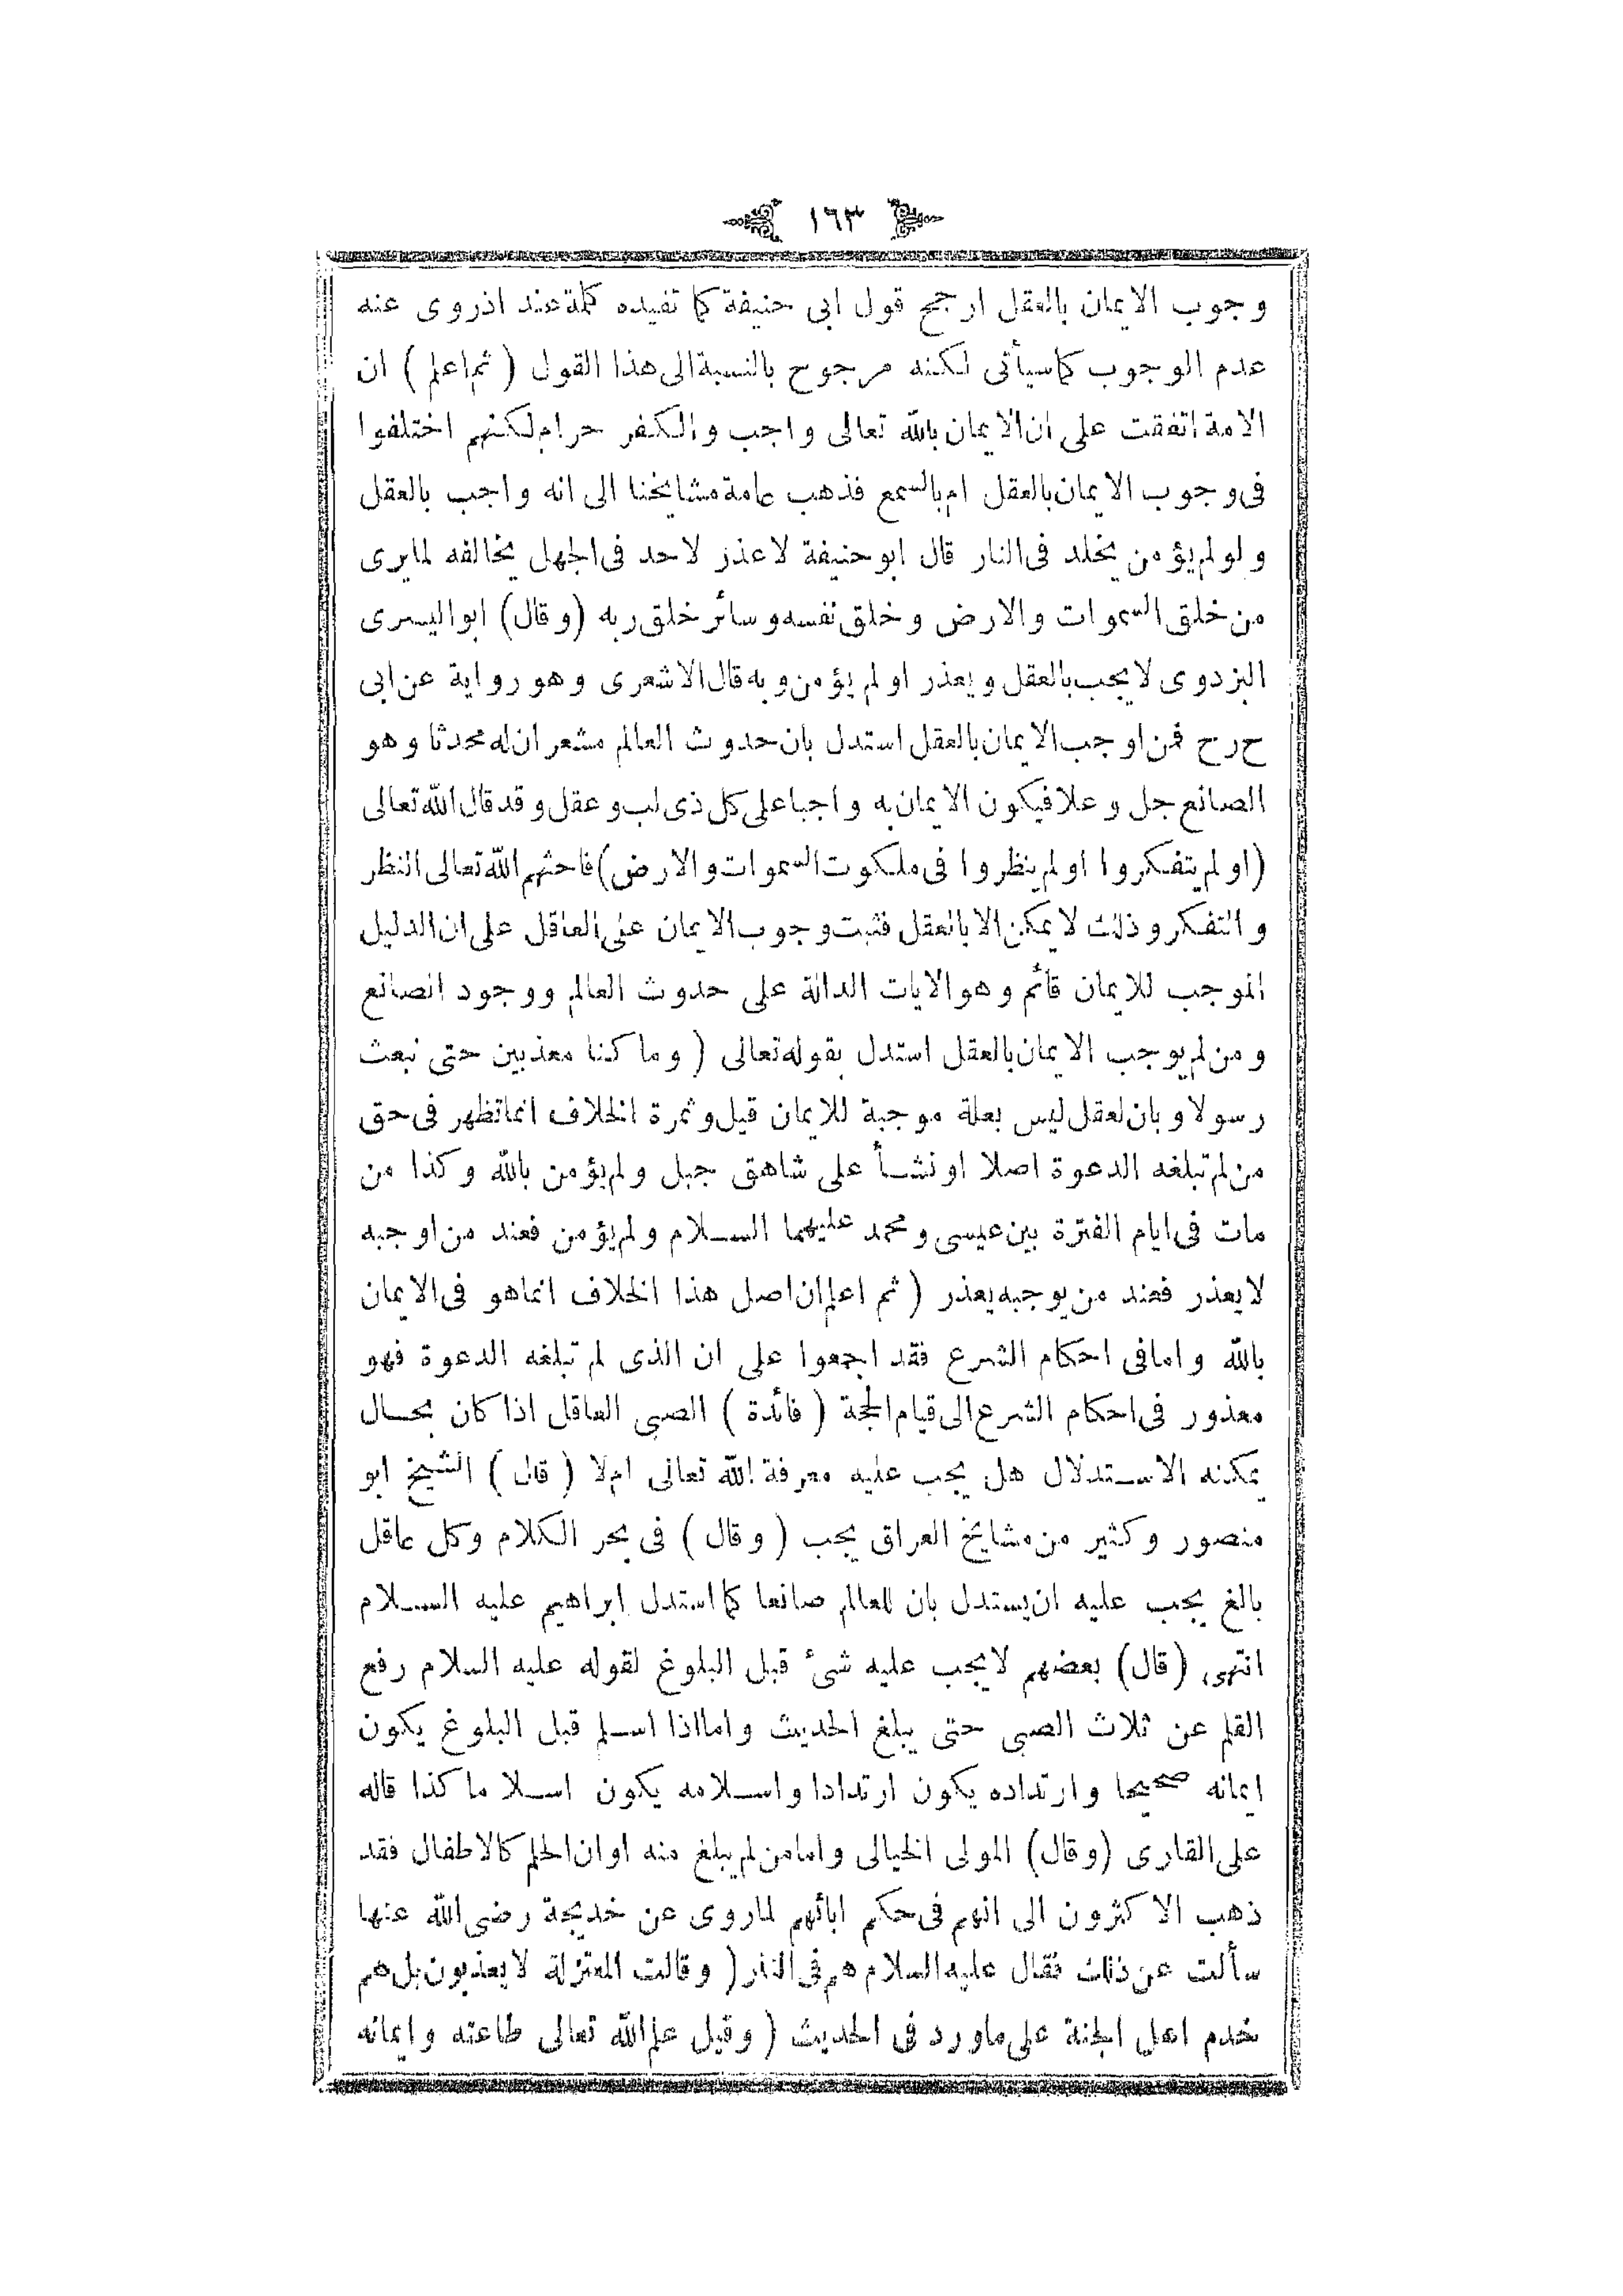 ١٦٣
وجوب الايمان بالعقل ارجح قول ابى حنيفة كما تفيده كلمة عند اذروى عنه
عدم الوجوب كما سيأتى لكنه مرجوح بالنسبة الى هذا القول ( ثم اعلم ) ان
الامة اتفقت على ان الايمان بالله تعالى واجب والكفر حرام لكنهم اختلفوا
فى وجوب الايمان بالعقل ام بالسمع فذهب عامة مشايخنا الى انه واجب بالعقل
ولو لم يؤمن يخلد فى النار قال ابو حنيفة لا عذر لاحد فى الجهل بخالقه لما يرى
من خلق السموات والارض وخلق نفسه وسائر خلق ربه (وقال) ابو اليسرى
البزدوى لا يجب بالعقل ويعذر او لم يؤمن وبه قال الاشعرى وهو رواية عن ابى
ح رح فمن اوجب الايمان بالعقل استدل بان حدوث العالم مشعر ان له محدثا وهو
الصانع جل وعلا فيكون الايمان به واجبا على كل ذى لب وعقل وقد قال الله تعالى
(او لم يتفكروا او لم ينظروا فى ملكوت السموات والارض) فاحثهم الله تعالى النظر
والتفكر وذلك لا يمكن الا بالعقل فثبت وجوب الايمان على العاقل على ان الدليل
الموجب للايمان قائم وهو الايات الدالة على حدوث العالم ووجود الصانع
ومن لم يوجب الايمان بالعقل استدل بقوله تعالى ( وما كنا معذبين حتى نبعث
رسولا وبان لعقل ليس بعلة موجبة للايمان قيل وثمرة الخلاف انما تظهر فى حق
من لم تبلغه الدعوة اصلا او نشأ على شاهق جبل ولم يؤمن بالله وكذا من
مات فى ايام الفترة بين عيسى ومحمد عليهما السلام ولم يؤمن فعند من اوجبه
لا يعذر فعند من يوجبه يعذر ( ثم اعلم ان اصل هذا الخلاف انما هو فى الايمان
بالله واما فى احكام الشرع فقد اجمعوا على ان الذى لم تبلغه الدعوة فهو
معذور فى احكام الشرع الى قيام الحجة ( فائدة ) الصبى العاقل اذا كان بحال
يمكنه الاستدلال هل يجب عليه معرفة الله تعالى ام لا ( قال ) الشيخ ابو
منصور وكثير من مشايخ العراق يجب ( وقال ) فى بحر الكلام وكل عاقل
بالغ يجب عليه ان يستدل بان للعالم صانعا كما استدل ابراهيم عليه السلام
انتهى (قال) بعضهم لا يجب عليه شئ قبل البلوغ لقوله عليه السلام رفع
القلم عن ثلاث الصبى حتى يبلغ الحديث واما اذا اسلم قبل البلوغ يكون
ايمانه صحيحا وارتداده يكون ارتدادا واسلامه يكون اسلاما كذا قاله
على القارى (وقال) المولى الخيالى واما من لم يبلغ منه اوان الحلم كالاطفال فقد
ذهب الاكثرون الى انهم فى حكم ابائهم لما روى عن خديجة رضى الله عنها
سألت عن ذلك فقال عليه السلام هم فى النار ( وقالت المعتزلة لا يعذبون بل هم
خدم اهل الجنة على ما ورد فى الحديث ( وقيل علم الله تعالى طاعته وايمانه